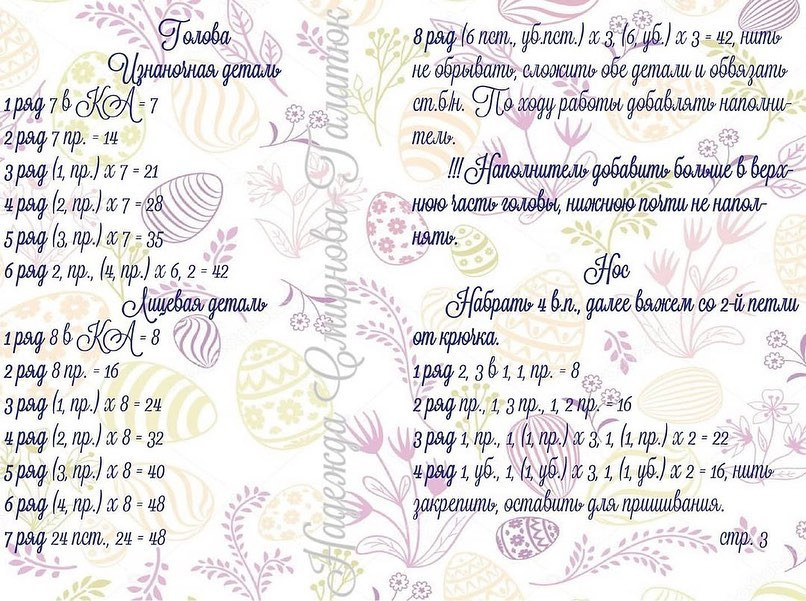 Голова
Изнаночная деталь
1 ряд 7 в КА = 7
2 ряд 7 пр. = 14
3 ряд (1, пр.) х 7 = 21
4 ряд (2, пр.) х 7 = 28
5 ряд (3, пр.) х 7 = 35
6 ряд 2, пр., (4, пр.) х 6, 2 = 42
Лицевая деталь
1 ряд 8 в КА = 8
2 ряд 8 пр. = 16
3 ряд (1, пр.) х 8 = 24
4 ряд (2, пр.) х 8 = 32
5 ряд (3, пр.) х 8 = 40
6 ряд (4, пр.) х 8 = 48
7 ряд 24 пст., 24 = 48
8 ряд (6 пст., уб.пст.) х 3, (6, уб.) х 3 = 42, нить
не обрывать, сложить обе детали и обвязать
ст.б/н. По ходу работы добавлять наполни-
тель.
!!! Наполнитель добавить больше в верх-
нюю часть головы, нижнюю почти не напол-
нять.
Нос
Набрать 4 в.п., далее вяжем со 2-й петли
от крючка.
1 ряд 2, 3 в 1, 1, пр. = 8
2 ряд пр., 1, 3 пр., 1, 2 пр. = 16
3 ряд 1, пр., 1, (1, пр.) х 3, 1, (1, пр.) х 2 = 22
4 ряд 1, уб., 1, (1, уб.) х 3, 1, (1, уб.) х 2 = 16, нить
закрепить, оставить для пришивания.
стр. 3
Надежда Смирнова-Галаток